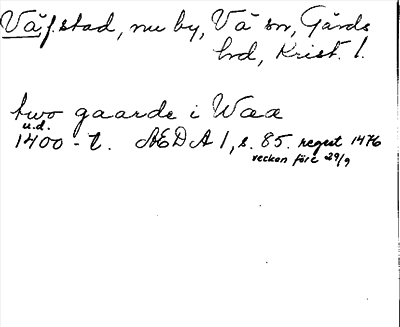 Vä f. stad, nu by, Vä sn, Gärds
hd, Krist. l.
two gaarde i Waa
u.d.
1400-t. ÆDA 1, s. 85. regest 1476
veckan före 29/9